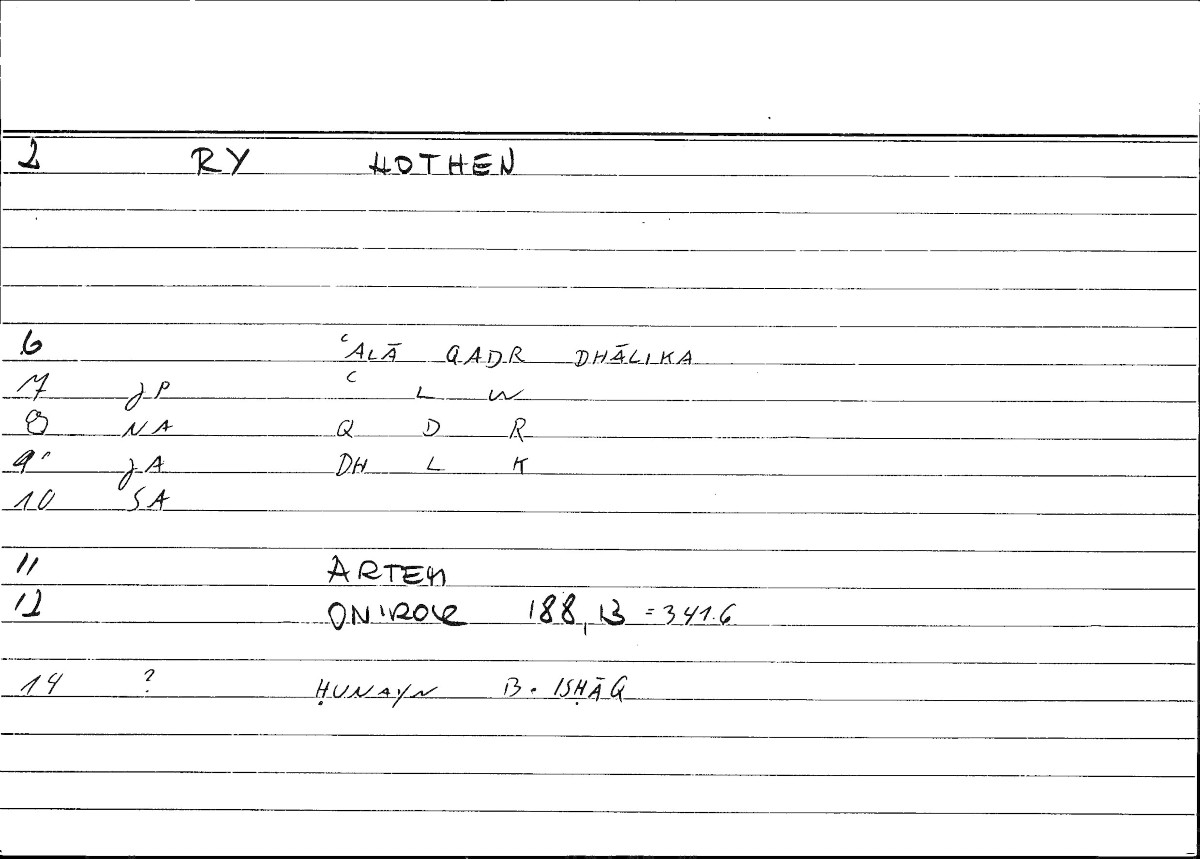 2 RY HOTHEN
6 ʿALĀ QADR DHĀLIKA
7 JP ʿ L W
8 NA Q D R
9 JA DH L K
10 SA
11 ARTEM
12 ONIROCR 188,13 =341.6
14 ? ḤUNAYN B. ISḤĀQ